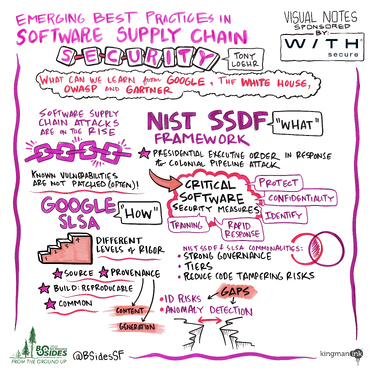 EMERGING BEST PRACTICES IN
SOFTWARE SUPPLY CHAIN
S-E-C-U-R-I-T-Y
TONY
LOEHR
VISUAL NOTES
SPONSORED
BY:
W/TH
secure
WHAT CAN WE LEARN from GOOGLE, THE WHITE HOUSE,
OWASP AND GARTNER
SOFTWARE SUPPLY
CHAIN ATTACKS
ARE ON THE RISE
KNOWN VULNERABILITIES
ARE NOT PATCHED (OFTEN)!
NIST SSDF
"WHAT"
FRAMEWORK
PRESIDENTIAL EXECUTIVE ORDER IN RESPONSE
to COLONIAL PIPELINE ATTACK
CRITICAL
SOFTWARE
SECURITY MEASURES
PROTECT
CONFIDENTIALITY
IDENTIFY
TRAINING
RAPID
RESPONSE
GOOGLE
SLSA
"HOW"
DIFFERENT
LEVELS of RIGOR
SOURCE
PROVENANCE
BUILD: REPRODUCABLE
COMMON
CONTENT
GENERATION
NIST SSDF & SLSA COMMONALITIES:
STRONG GOVERNANCE
TIERS
REDUCE CODE TAMPERING RISKS
GAPS
ID RISKS
ANOMALY DETECTION
BSIDES
FROM THE GROUND UP
@BSidesSF
kingmanink